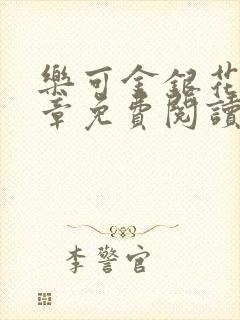 樂可金銀花
章免費閱讀
李警官